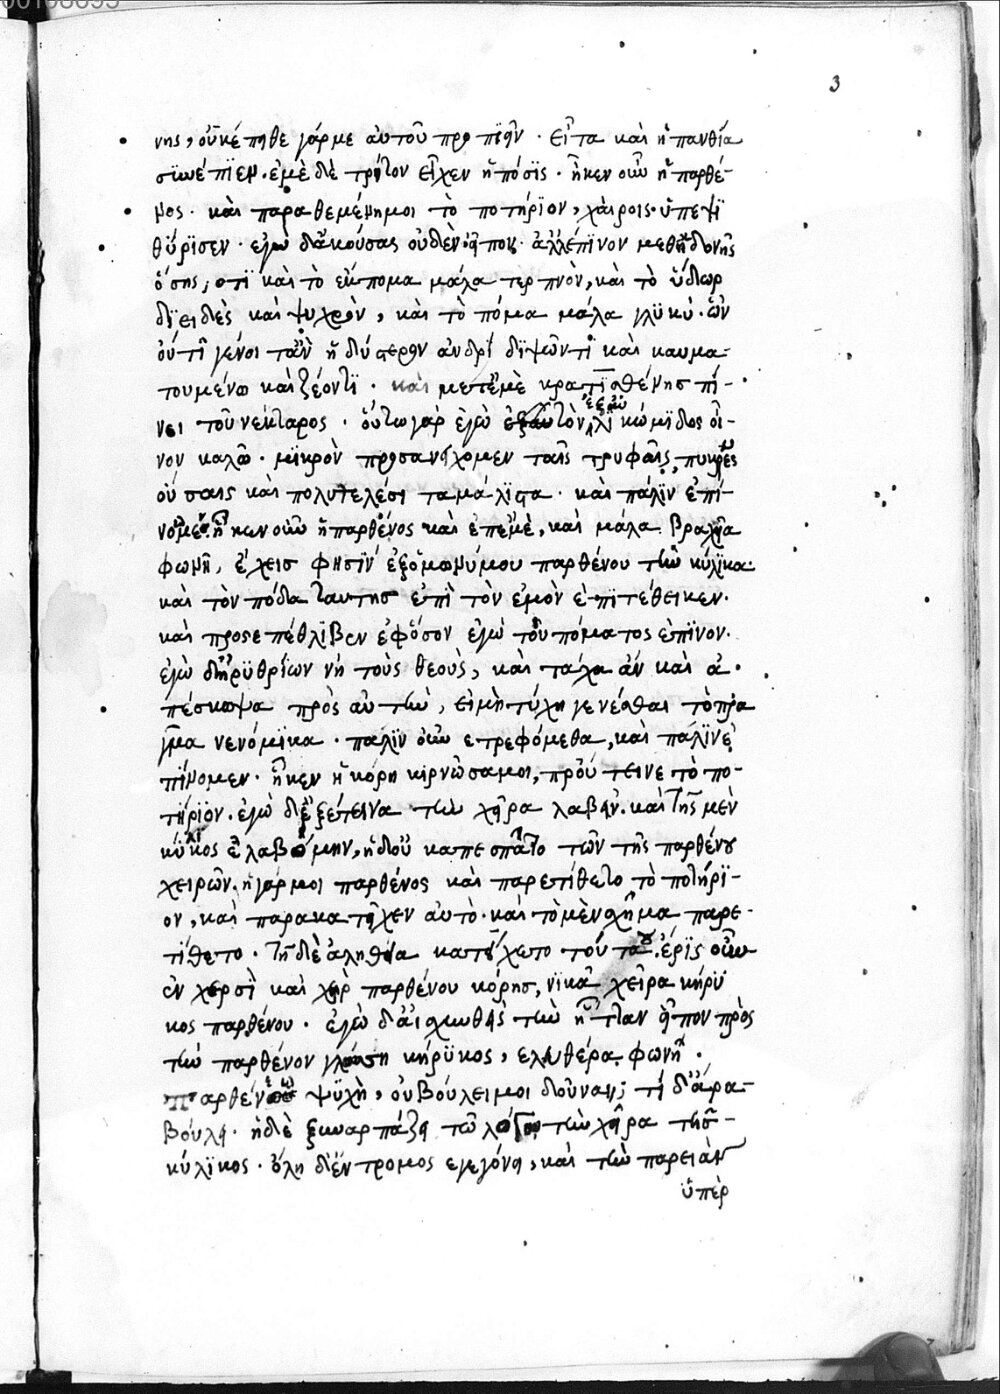 3
νης, οὐκ ἔπηθε γάρ με αὐτοῦ προπιεῖν · εἶτα καὶ ἡ πανθία
σϊωέπϊεν. ἐμὲ δὲ τρίτον εἶχεν ἡ πόσϊς · ἧκεν οὖν ἡ παρθέ-
νος · καὶ παραθεμένημοι τὸ ποτήριον, χαίροις · ὑπεψϊ
θύρϊσεν · ἐγὼ δ' ἀκούσας οὐδὲν εἶπον · ἀλλ' ἔπϊνον μεθ' ἡδονῆς
ὅσης, οτϊ καὶ τὸ ἔκπομα μάλα τερπνὸν, καὶ τὸ ὕδωρ
δϊειδὲς καὶ ψυχρὸν, καὶ τὸ πόμα μάλα γλϋκύ · ὧν
οὔτϊ γένοιτ' ἂν ἡδύτερον ἀνδρὶ διψῶντι καὶ καυμα-
τουμένω καὶ ζέοντϊ · καὶ μετ' ἐμὲ κρατϊσθένησ πί-
νει τοῦ νέκταρος · οὕτω γὰρ ἐγὼ τὸν κώμϊδος οἶ-
νον καλῶ · μϊκρὸν προσανήχομεν ταῖς τρυφαῖς, πυκναῖς
οὔσαις καὶ πολυτελέσι ταμάλϊστα · καὶ πάλϊν ἐπί-
νομεν · ἧκεν οὖν ἡ παρθένος καὶ ἐπ' ἐμὲ, καὶ μάλα βραχεία
φωνῆ, ἔχεισ φησϊν ἐξ ὁμωνύμου παρθένου τὴν κύλϊκα ·
καὶ τὸν πόδα ταυτησ ἐπὶ τὸν ἐμὸν ἐπϊτέθεικεν ·
καὶ προσεπέθλϊβεν ἐφ' ὅσον ἐγὼ τοῦ πόματος ἔπϊνον ·
ἐγὼ δ' ἠρϋθρίων νὴ τοὺς θεοὺς, καὶ τάχα ἂν καὶ ἀ ·
πέσκωψα πρὸς αὐτὴν, εἰμὴ τύχη γενέσθαι τὸ πρᾶ
γμα νενόμϊκα · πάλϊν οὖν ετρεφόμεθα, καὶ πάλϊν ἐ
πϊνομεν · ἧκεν ἡ κόρη κιρνῶσαμοι, πρού τεινε τὸ πο-
τήρϊον · ἐγὼ δ' ἐξέτεινα τὴν χεῖρα λαβεῖν · καὶ τῆς μὲν
κύλικος ἐλαβόμην, ἡ δ' οὐ κατεσπᾶτο τῶν τῆς παρθένου
χειρῶν · ἡ γάρμοι παρθένος καὶ παρετίθετο τὸ ποτήρϊ-
ον, καὶ παρακατεῖχεν αὐτὸ · καὶ τὸ μὲν σχῆμα παρε-
τίθετο · τῇ δὲ ἀληθεία κατείχετο τοῦτο · ἔρϊς οὖν
ἐν χερσὶ καὶ χεὶρ παρθένου κόρησ, νϊκᾶ χεῖρα κήρϋ
κος παρθένου · ἐγὼ δ' αἰσχυνθεὶς τὴν ἧτταν εἶπον πρὸς
τὴν παρθένον γλώσση κήρϋκος, ελευθέρα φωνῆ ·
Παρθένου ψϋχὴ, οὐ βούλειμοι δοῦναι; τί δ' ἄρα
βούλη · ἡ δὲ ξυναρπάζει τῶ λόγω τὴν χεῖρα τῆσ
κύλϊκος · ὅλη δ' ἔντρομος εγεγόνει, καὶ τὴν παρειὰν
ὑπὲρ